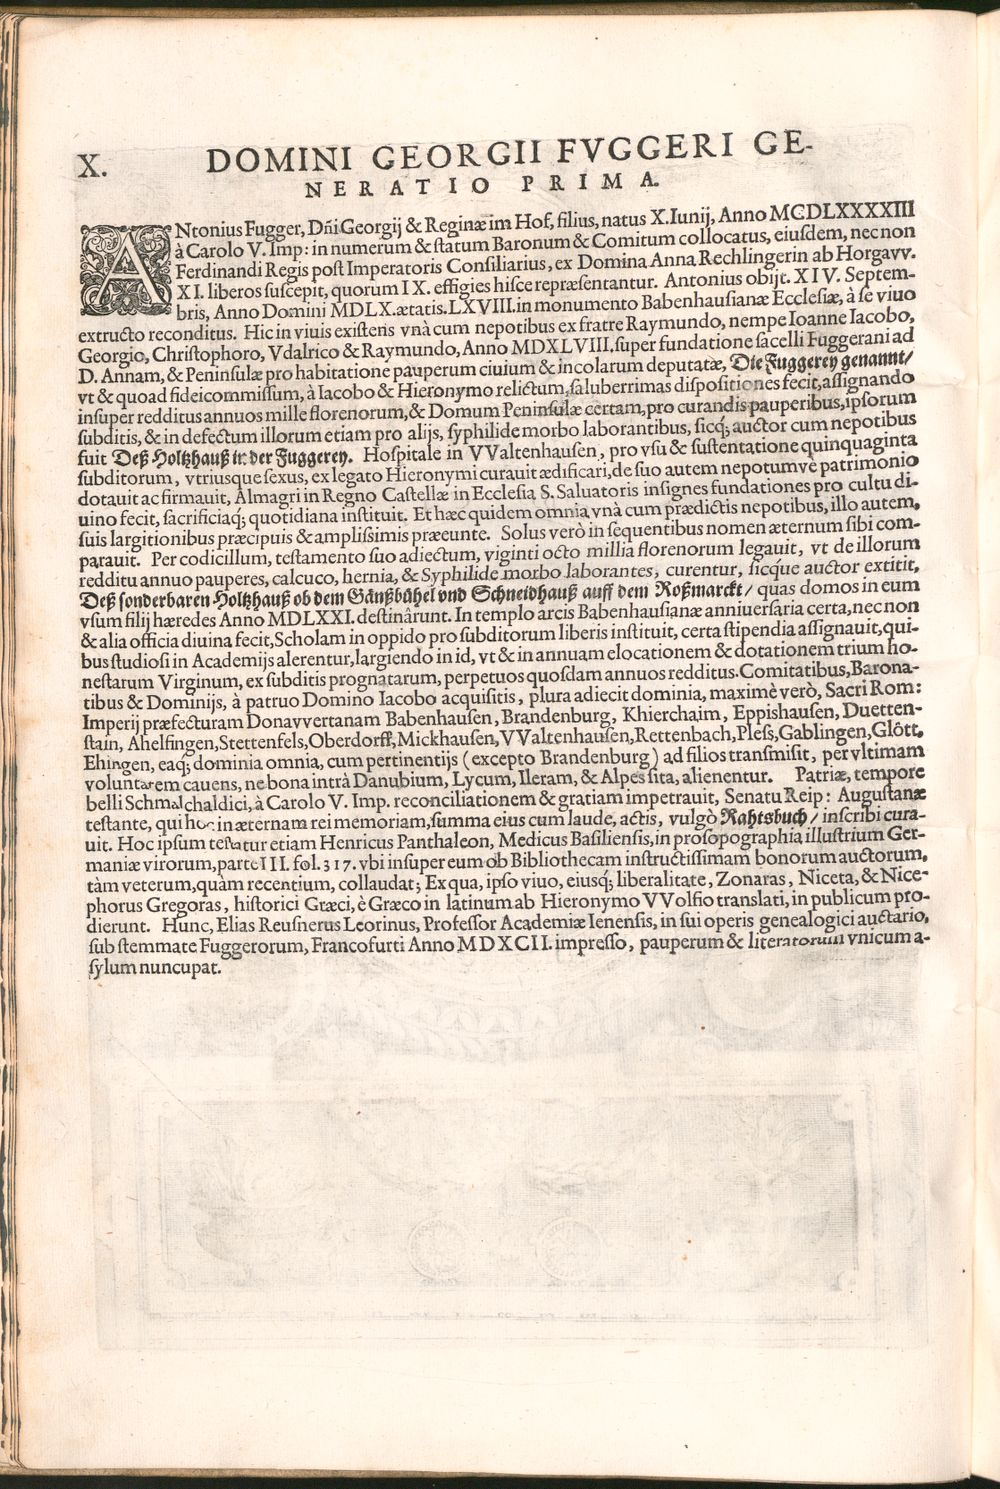 X. DOMINI GEORGII FVGGERI GE-
NERATIO PRIMA.
ANtonius Fugger, Dñi Georgij & Reginæ im Hof, filius, natus X. Iunij, Anno MCDLXXXXIII
à Carolo V. Imp: in numerum & statum Baronum & Comitum collocatus, eiusdem, nec non
Ferdinandi Regis post Imperatoris Consiliarius, ex Domina Anna Rechlingerin ab Horgavv.
XI. liberos suscepit, quorum IX. effigies hisce repræsentantur. Antonius obijt. XIV. Septem-
bris, Anno Domini MDLX. ætatis. LXVIII. in monumento Babenhausianæ Ecclesiæ, à se viuo
extructo reconditus. Hic in viuis existens vnà cum nepotibus ex fratre Raymundo, nempe Ioanne Iacobo,
Georgio, Christophoro, Vdalrico & Raymundo, Anno MDXLVIII. super fundatione sacelli Fuggerani ad
D. Annam, & Peninsulæ pro habitatione pauperum ciuium & incolarum deputatæ, Die Fuggerey genannt/
vt & quoad fideicommissum, à Iacobo & Hieronymo relictum, saluberrimas dispositiones fecit, assignando
insuper redditus annuos mille florenorum, & Domum Peninsulæ certam, pro curandis pauperibus, ipsorum
subditis, & in defectum illorum etiam pro alijs, syphilide morbo laborantibus, sicq; auctor cum nepotibus
fuit Deß Holtzhauß in der Fuggerey. Hospitale in VValtenhausen, pro vsu & sustentatione quinquaginta
subditorum, vtriusque sexus, ex legato Hieronymi curauit ædificari, de suo autem nepotumve patrimonio
dotauit ac firmauit, Almagri in Regno Castellæ in Ecclesia S. Saluatoris insignes fundationes pro cultu di-
uino fecit, sacrificiaq; quotidiana instituit. Et hæc quidem omnia vnà cum prædictis nepotibus, illo autem,
suis largitionibus præcipuis & amplissimis præeunte. Solus verò in sequentibus nomen æternum sibi com-
parauit. Per codicillum, testamento suo adiectum, viginti octo millia florenorum legauit, vt de illorum
redditu annuo pauperes, calcuco, hernia, & Syphilide morbo laborantes, curentur, sicque auctor extitit,
Deß sonderbaren Holtzhauß ob dem Gänßbühel vnd Schneidhauß auff dem Roßmarckt/ quas domos in eum
vsum filij hæredes Anno MDLXXI. destinârunt. In templo arcis Babenhausianæ anniuersaria certa, nec non
& alia officia diuina fecit, Scholam in oppido pro subditorum liberis instituit, certa stipendia assignauit, qui-
bus studiosi in Academijs alerentur, largiendo in id, vt & in annuam elocationem & dotationem trium ho-
nestarum Virginum, ex subditis prognatarum, perpetuos quosdam annuos redditus. Comitatibus, Barona-
tibus & Dominijs, à patruo Domino Iacobo acquisitis, plura adiecit dominia, maximè verò, Sacri Rom:
Imperij præfecturam Donavvertanam Babenhausen, Brandenburg, Khierchaim, Eppishausen, Duetten-
stain, Ahelfingen, Stettenfels, Oberdorff, Mickhausen, VValtenhausen, Rettenbach, Pless, Gablingen, Glôtt,
Ehingen, eaq; dominia omnia, cum pertinentijs (excepto Brandenburg) ad filios transmisit, per vltimam
voluntatem cauens, ne bona intrà Danubium, Lycum, Ileram, & Alpes sita, alienentur. Patriæ, tempore
belli Schmalchaldici, à Carolo V. Imp. reconciliationem & gratiam impetrauit, Senatu Reip: Augustanæ
testante, qui hoc in æternam rei memoriam, summa eius cum laude, actis, vulgò Rahtsbuch/ inscribi cura-
uit. Hoc ipsum testatur etiam Henricus Panthaleon, Medicus Basiliensis, in prosopographia illustrium Ger-
maniæ virorum, parte III. fol. 317. vbi insuper eum ob Bibliothecam instructissimam bonorum auctorum,
tàm veterum, quàm recentium, collaudat; Ex qua, ipso viuo, eiusq; liberalitate, Zonaras, Niceta, & Nice-
phorus Gregoras, historici Græci, è Græco in latinum ab Hieronymo VVolfio translati, in publicum pro-
dierunt. Hunc, Elias Reusnerus Leorinus, Professor Academiæ Ienensis, in sui operis genealogici auctario,
sub stemmate Fuggerorum, Francofurti Anno MDXCII. impresso, pauperum & literatorum vnicum a-
sylum nuncupat.